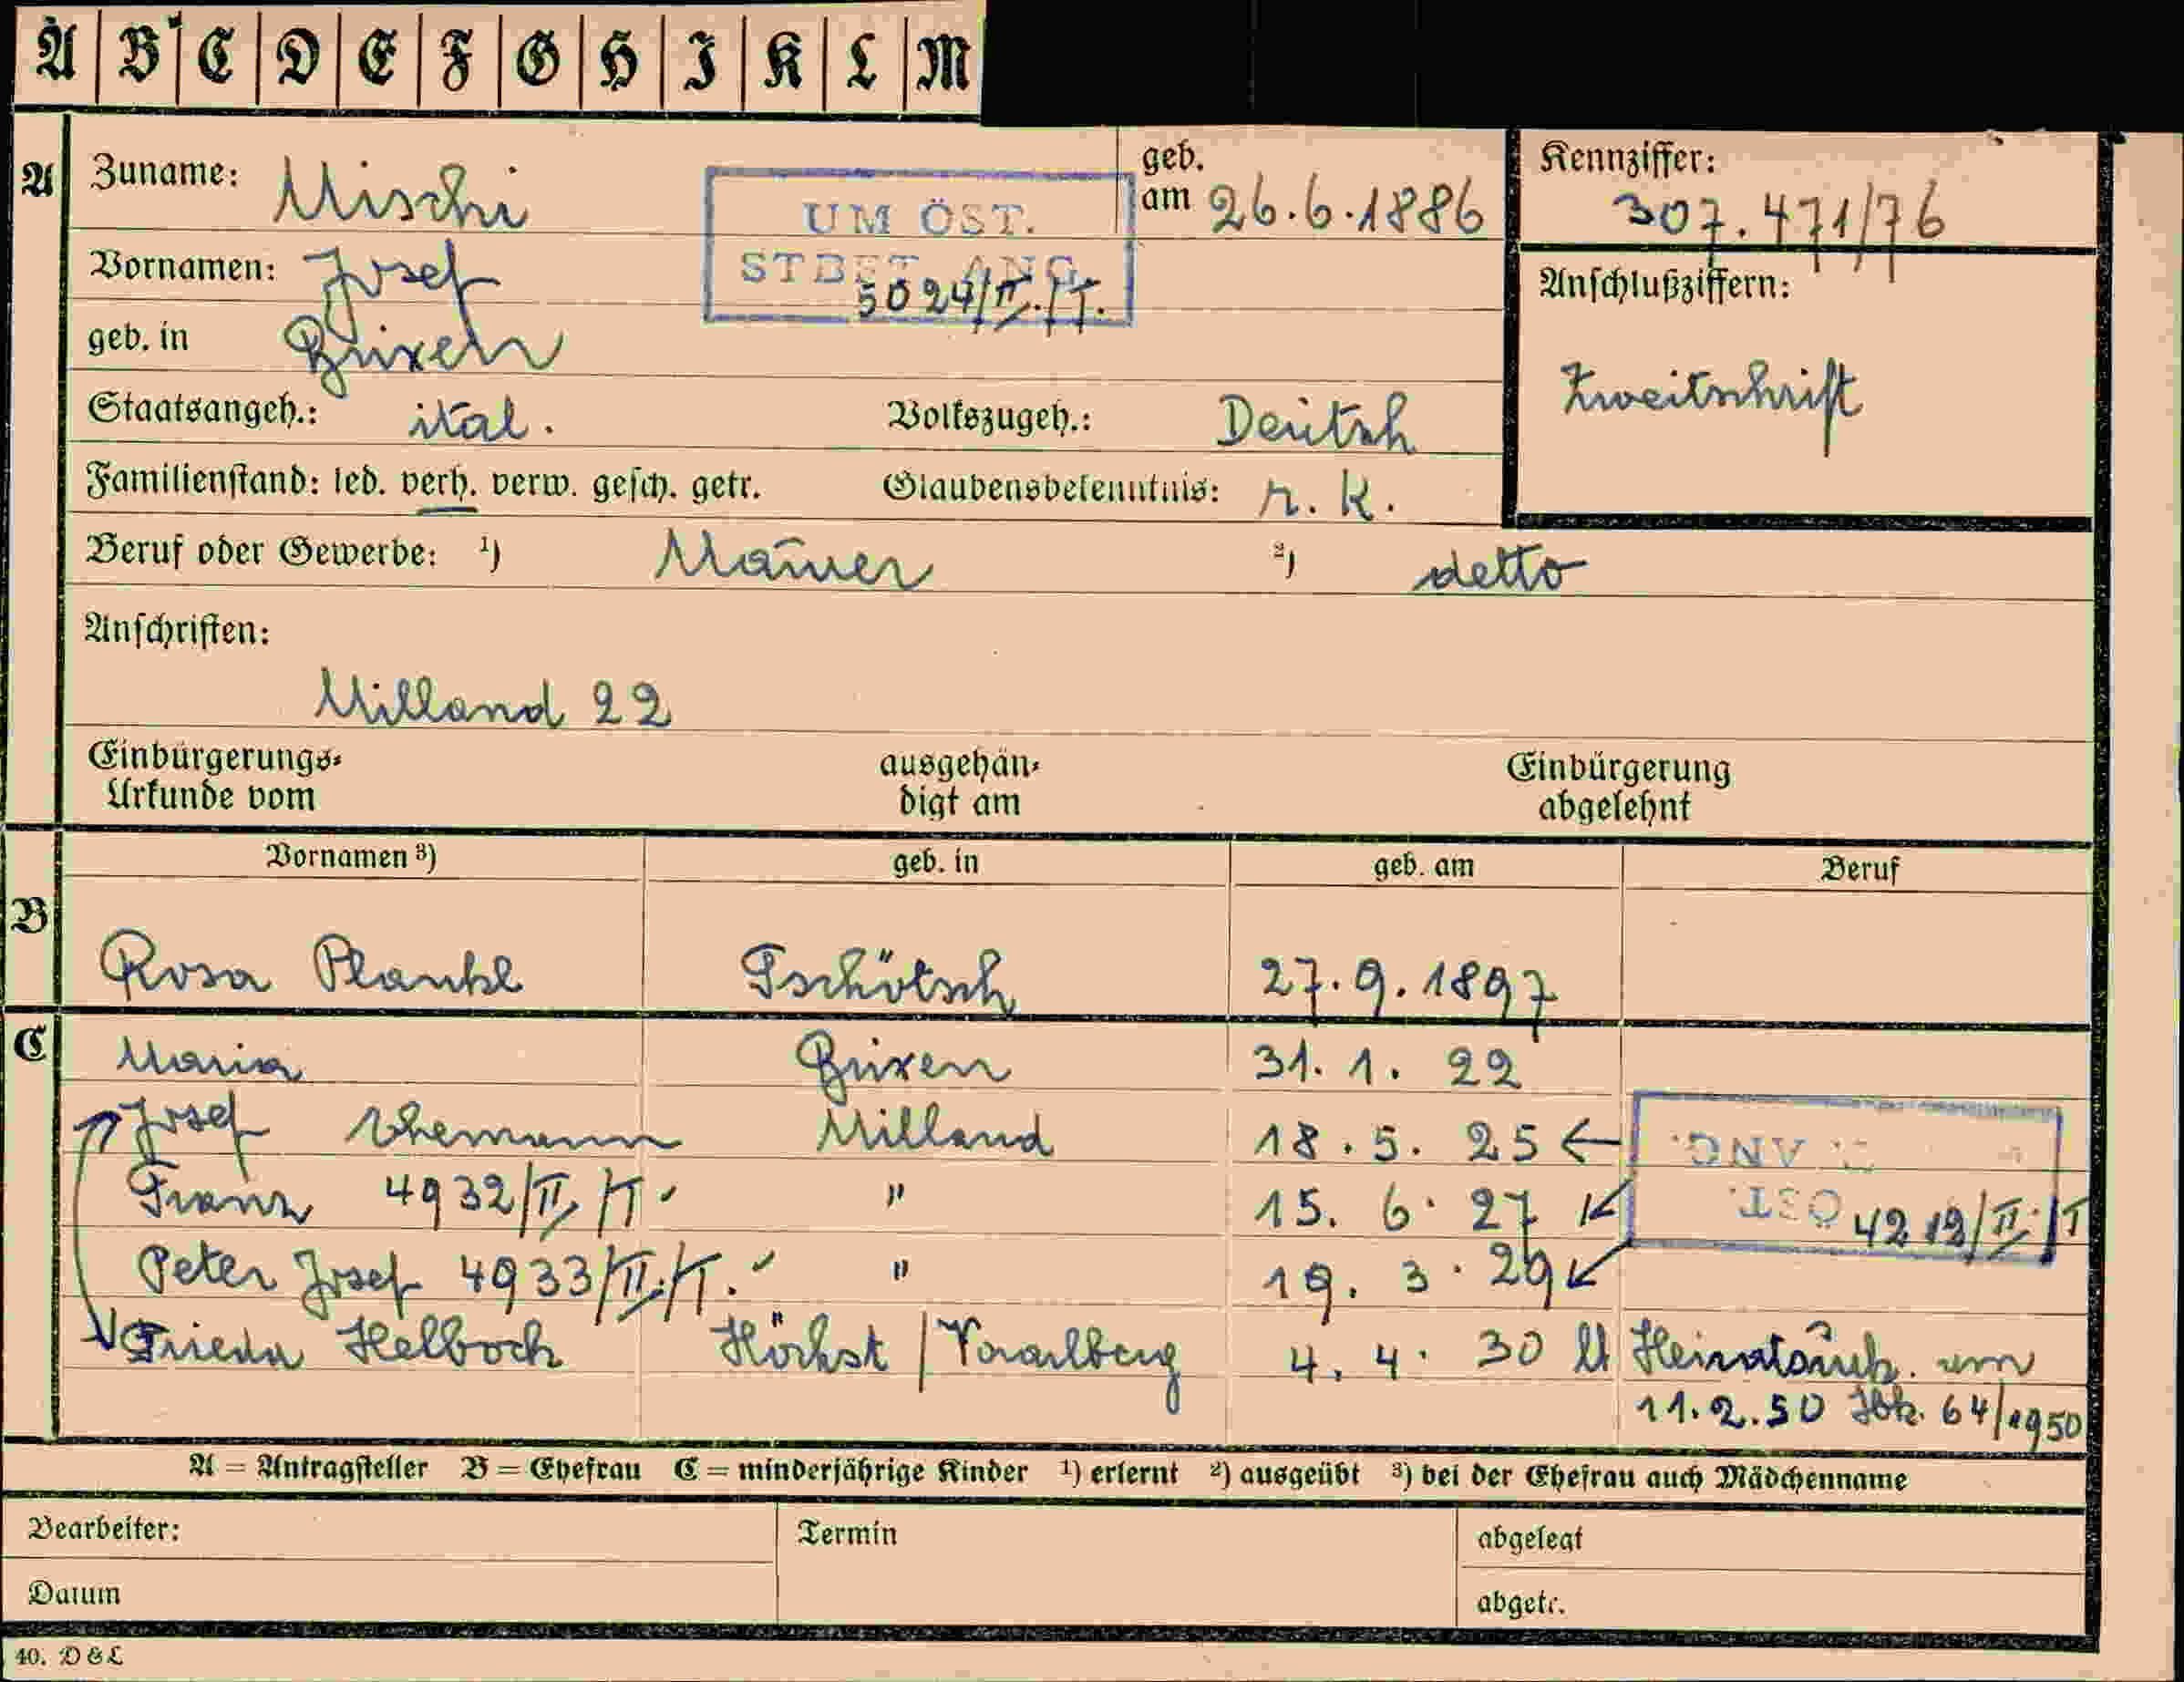 A B C D E F G H I K L M
A Zuname: Mischi geb. am 26.6.1886 Kennziffer: 307.471/76
UM ÖST.
Vornamen: Josef
5024/II./T.
Anschlußziffern:
geb. in Brixen
Zweitschrift
Staatsangeh.: ital. Volkszugeh.: Deutsch
Familienstand: led. verh. verw. gesch. getr. Glaubensbekenntnis: r. k.
Beruf oder Gewerbe: ¹) Maurer ²) detto
Anschriften:
Milland 22
Einbürgerungs- ausgehän- Einbürgerung
Urkunde vom digt am abgelehnt
Vornamen ³) geb. in geb. am Beruf
B
Rosa Plankl Tschötsch 27.9.1897
C Maria Brixen 31. 1. 22
Josef Ehemann Milland 18. 5. 25 ANG.
Franz 4932/II/T. " 15. 6. 27 ÖST. 4212/II./T
Peter Josef 4933/II./T. " 19. 3. 29
Frieda Helbock Höchst / Vorarlberg 4. 4. 30 Heiratsurk. vom
11.2.50 Ibk. 64/1950
A = Antragsteller B = Ehefrau C = minderjährige Kinder ¹) erlernt ²) ausgeübt ³) bei der Ehefrau auch Mädchenname
Bearbeiter: Termin abgelegt
Datum abgetr.
40. D & L